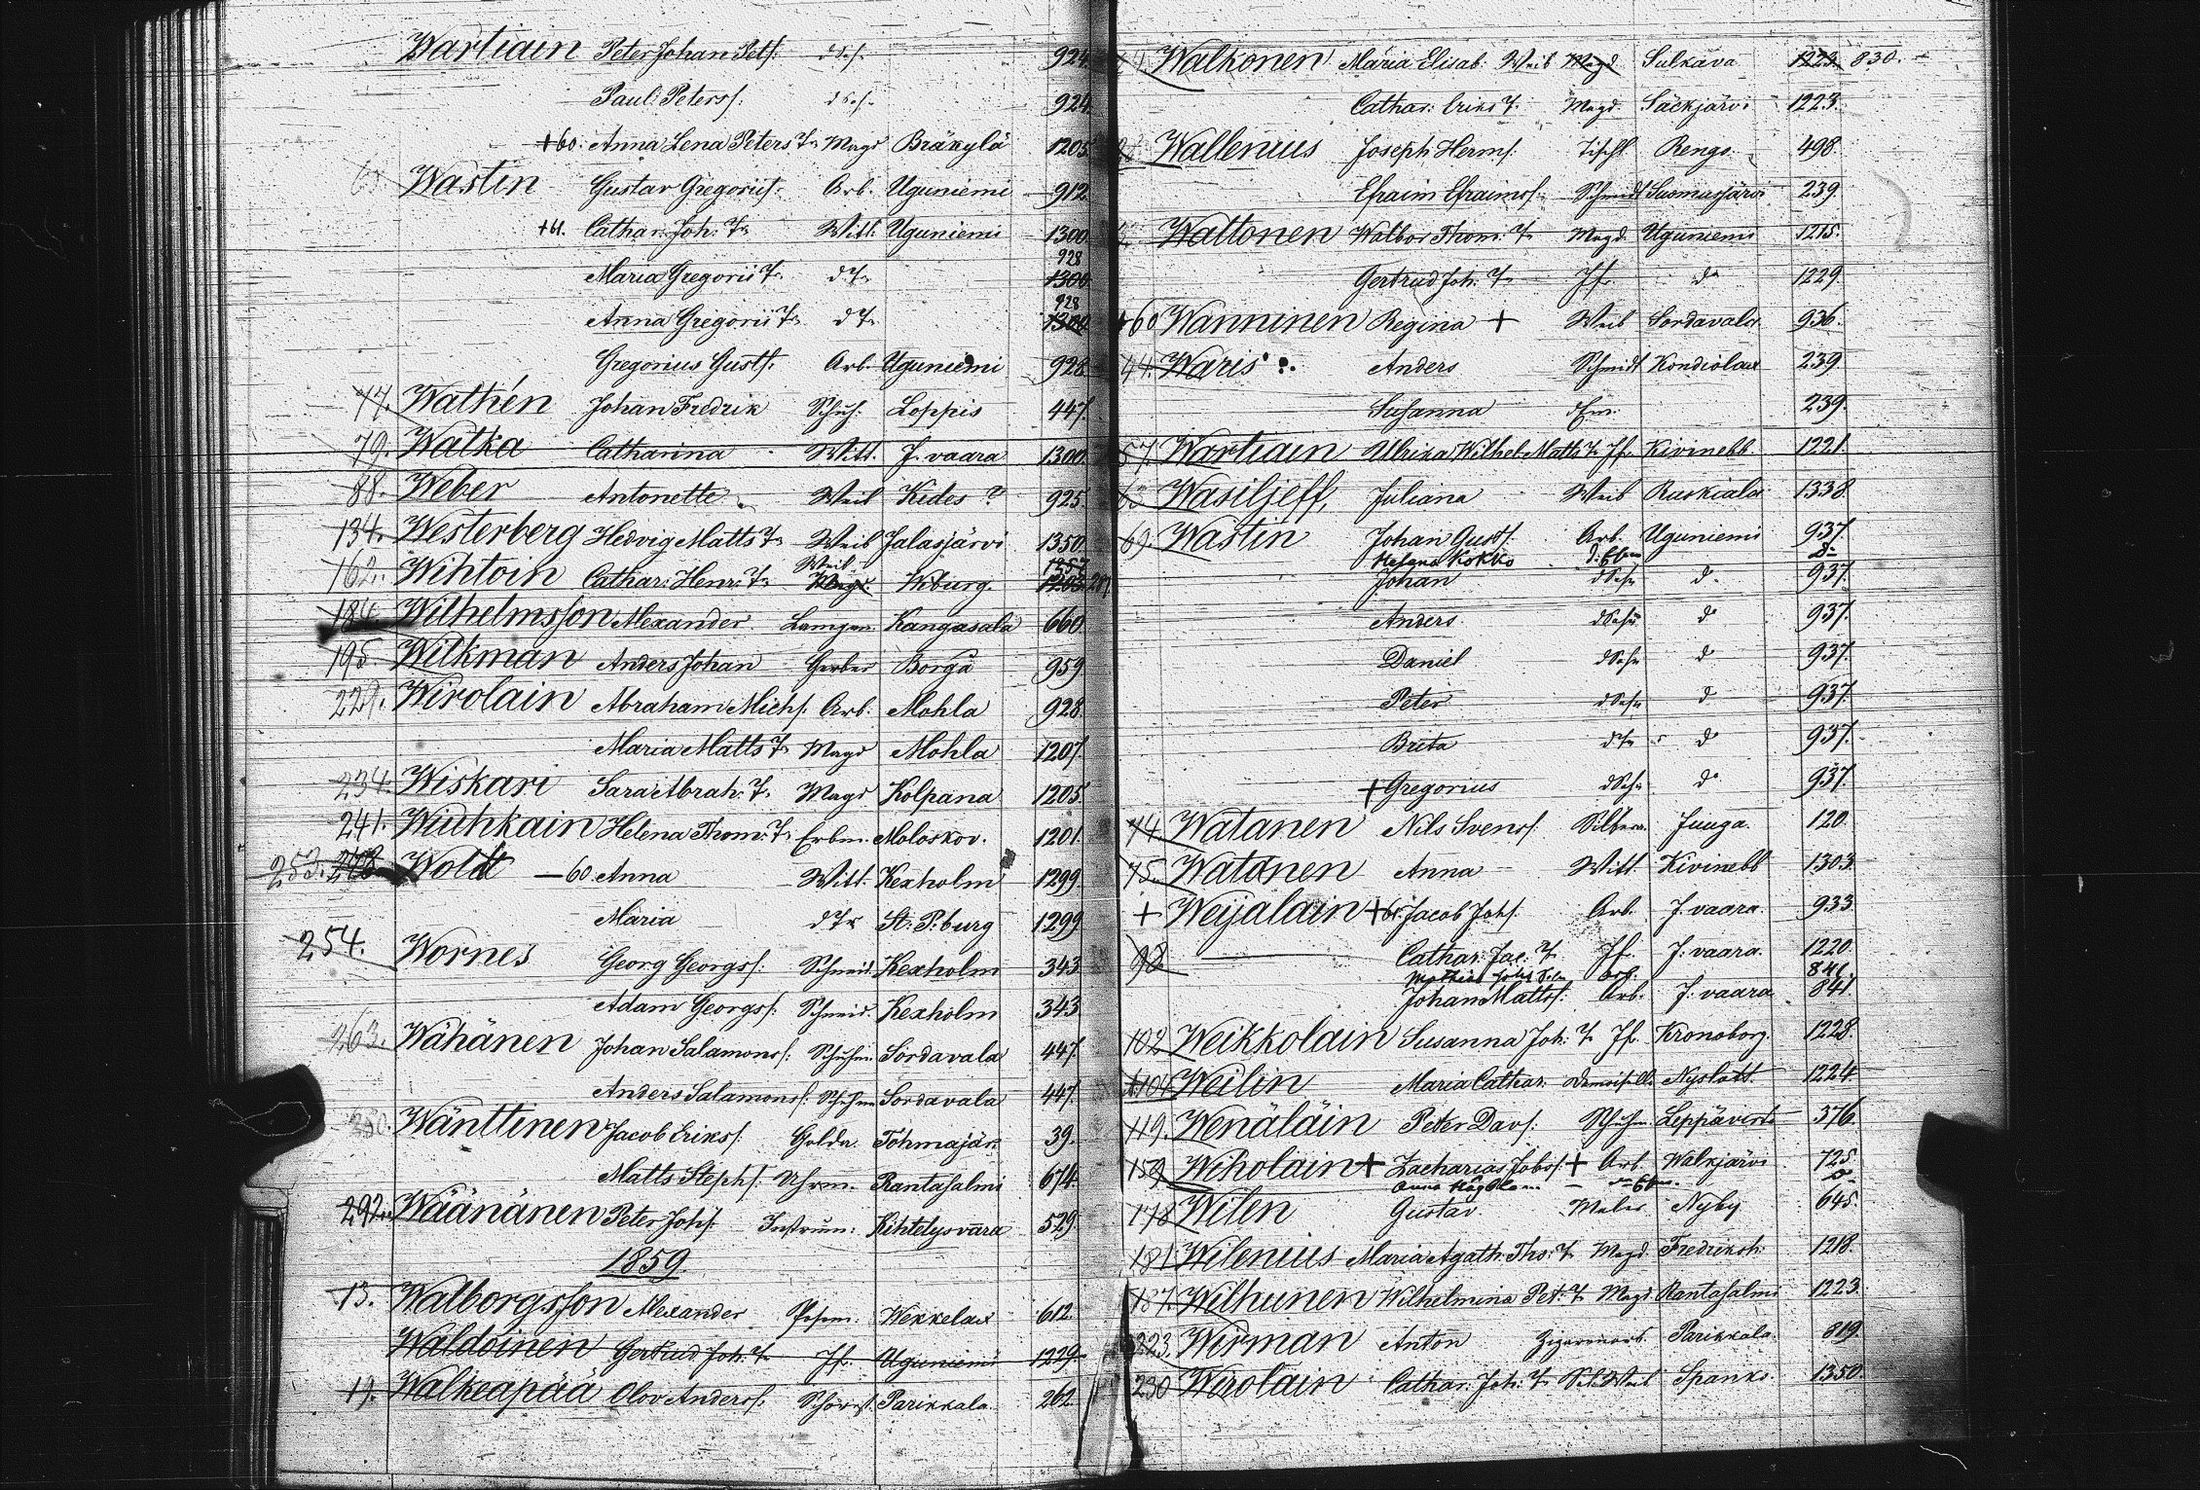 Wartiain Peter Johan Pets. dSn. 924
Paul Peterss. dSn. 924
+60. Anna Lena Peters Tr. Magd Bräkylä 1205
Wastin Gustav Gregoriis. Arb. Uguniemi 912
+61. Cathar. Joh. Tr. Witt. Uguniemi 1300
928
Maria Gregorii Tr. dTr. 1300
928
Anna Gregorii Tr. dTr. 1300
Gregorius Gusts. Arb. Uguniemi 928
77. Wathén Johan Fredrik Schuh. Loppis 447
79. Watka Catharina Witt. J. vaara 1300
88. Weber Antonette Weib Kides ? 925
134. Westerberg Hedvig Matts Tr. Weib Jalasjärvi 1350
Weib 1257
162. Wihtoin Cathar. Henr. Tr. Magd. Wburg. 1203
184. Wilhelmsson Alexander Lampen Kangasala 660
195. Wilkman Anders Johan Gerber Borgå 959
229. Wirolain Abraham Michs. Arb. Mohla 928
Maria Matts Tr. Magd Mohla 1207
234. Wiskari Sara Abrah. Tr. Magd Kolpana 1205
241. Wuhkain Helena Thom. Tr. Erbm. Moloskov. 1201
253. 248 Woldt —60. Anna Witt. Kexholm 1299
Maria dTr St. P.burg 1299
254. Wornes Georg Georgs. Schmid. Kexholm 343
Adam Georgs. Schmid. Kexholm 343
263. Wähänen Johan Salamons. Schuhm. Sordavala 447
Anders Salamons. Schuhm Sordavala 447
280. Wänttinen Jacob Eriks. Golda. Tohmajär. 39.
Matts Stephs. Uhrm. Rantasalmi 674
292. Wäänänen Peter Johs. Instrum: Kihtelysvara 529
1859.
13. Walborgsson Alexander Posam. Wekkelax 612
Waldoinen Gertrud Joh. Tr. Jf. Uguniemi 1229
19. Walkeapää Olov Anderss. Schornst. Parikkala 262
Walkonen Maria Elisab. Weib Magd Sulkava 1223. 830.
Cathar. Eriks T. Magd Säckjärvi 1223.
Wallenius Joseph Herms. Tischl. Rengo. 498.
Efraim Efraims. Schmidt Suomusjärvi 239.
Waltonen Walbor Thom. Tr. Magd. Uguniemi 1215.
Gertrud Joh. Tr. Jf. do 1229.
+60 Wanninen Regina + Weib Sordavala 936.
44. Waris Anders Schmidt Kondiolax 239.
Susanna dEm. 239.
57. Wartiain Ulrika Wilhel. Matts T. Jf. Kivinebb 1221.
Wasiljeff, Juliana Weib Ruskiala 1338
69. Wastin Johan Gusts. Arb. Uguniemi 937.
Helena Kokko d. Ebm d:
Johan dSn d. 937.
Anders dSn do 937.
Daniel dSn do 937.
Peter dSn do 937.
Brita dTr do 937.
+ Gregorius dSn. do 937.
74. Watanen Nils Svens. Silbera. Juuga. 120.
75. Watanen Anna Witt. Kivinebb 1303.
+ Weijalain +61. Jacob Johs. Arb. J. vaara. 933.
98 Cathar. Jac. T. Jf. J. vaara. 1220.
Mathias Johs Son arb. 841.
Johan Matts. Arb. J. vaara. 841.
102 Weikkolain Susanna Joh. T. Jf. Kronoborg. 1228.
104 Weilin Maria Cathar. Demoiselle. Nyslott. 1224.
119. Wenäläin Peter Davs. Schuhm. Leppävirta 376.
159 Wiholain + Zacharias Jobs. + Arb. Walkjärvi 725.
178 Wilen Gustav Maler Nyby 645.
181. Wilenius Maria Agath. Ths. T. Magd Fredriksh. 1218.
187. Wilhunen Wilhelmina Pet. T. Magd. Rantasalmi 1223.
223. Wirman Anton Zigarrenarb. Parikkala. 819.
230 Wirolain Cathar. Joh. Tr. Weib Spanko. 1350.